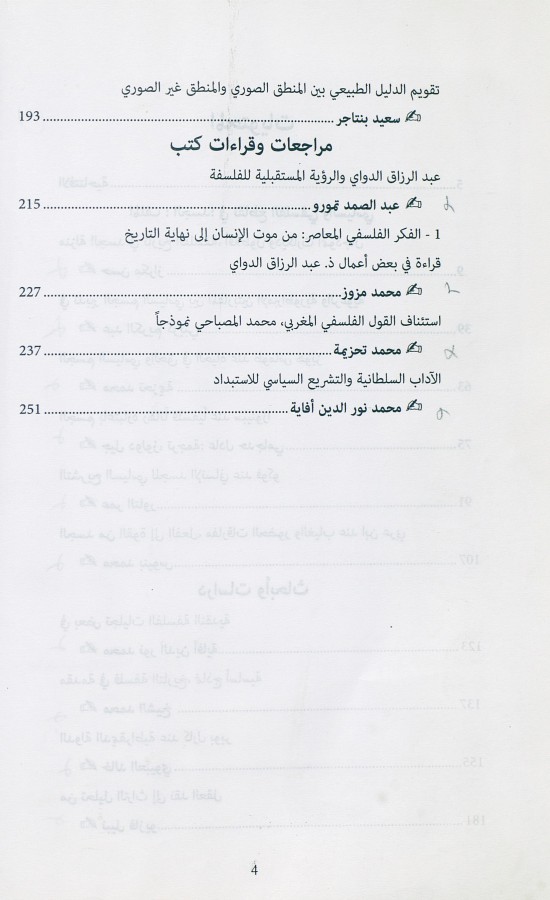 تقويم الدليل الطبيعي بين المنطق الصوري والمنطق غير الصوري
✍ سعيد بنتاجر ............................................................ 193
مراجعات وقراءات كتب
عبد الرزاق الدواي والرؤية المستقبلية للفلسفة
✍ عبد الصمد تمورو ............................................................ 215
1 - الفكر الفلسفي المعاصر: من موت الإنسان إلى نهاية التاريخ
قراءة في بعض أعمال ذ. عبد الرزاق الدواي
✍ محمد مزوز ............................................................ 227
استئناف القول الفلسفي المغربي، محمد المصباحي نموذجاً
✍ محمد تحزيمة ............................................................ 237
الآداب السلطانية والتشريع السياسي للاستبداد
✍ محمد نور الدين أفاية ............................................................ 251
4